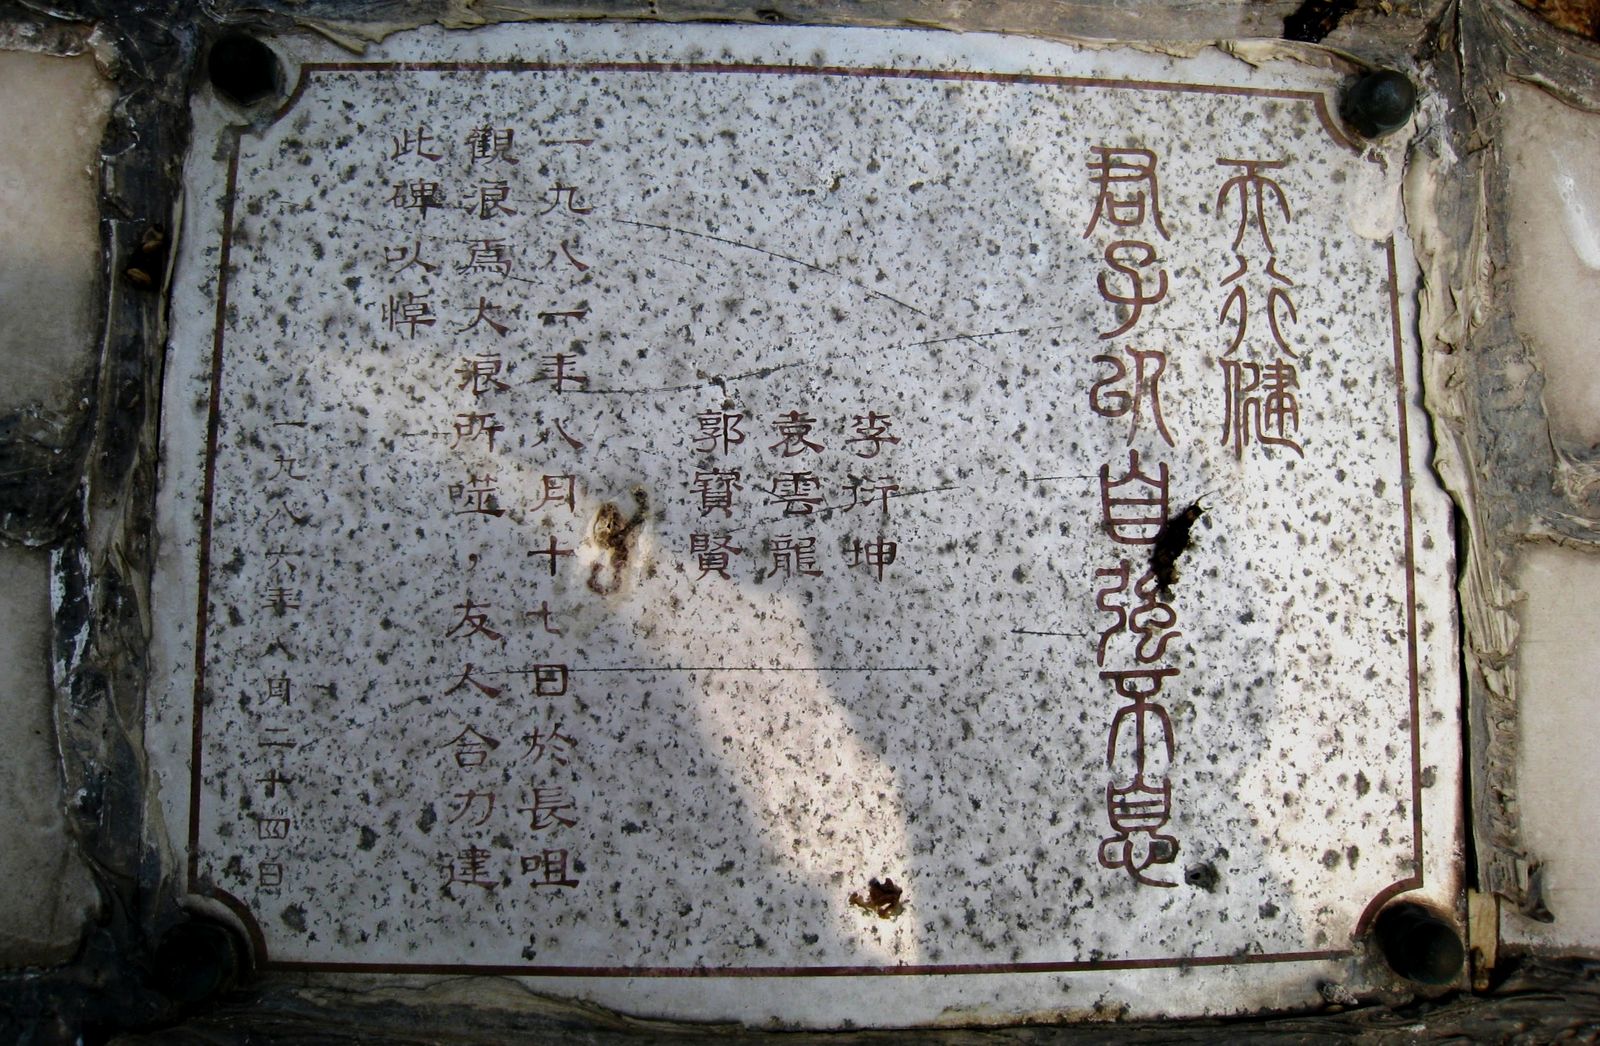 天行健
君子以自強不息
李衍坤
袁雲龍
郭寶賢
一九八一年八月十七日於長咀
觀浪為大浪所噬，友人合力建
此碑以悼
一九八六年八月二十四日